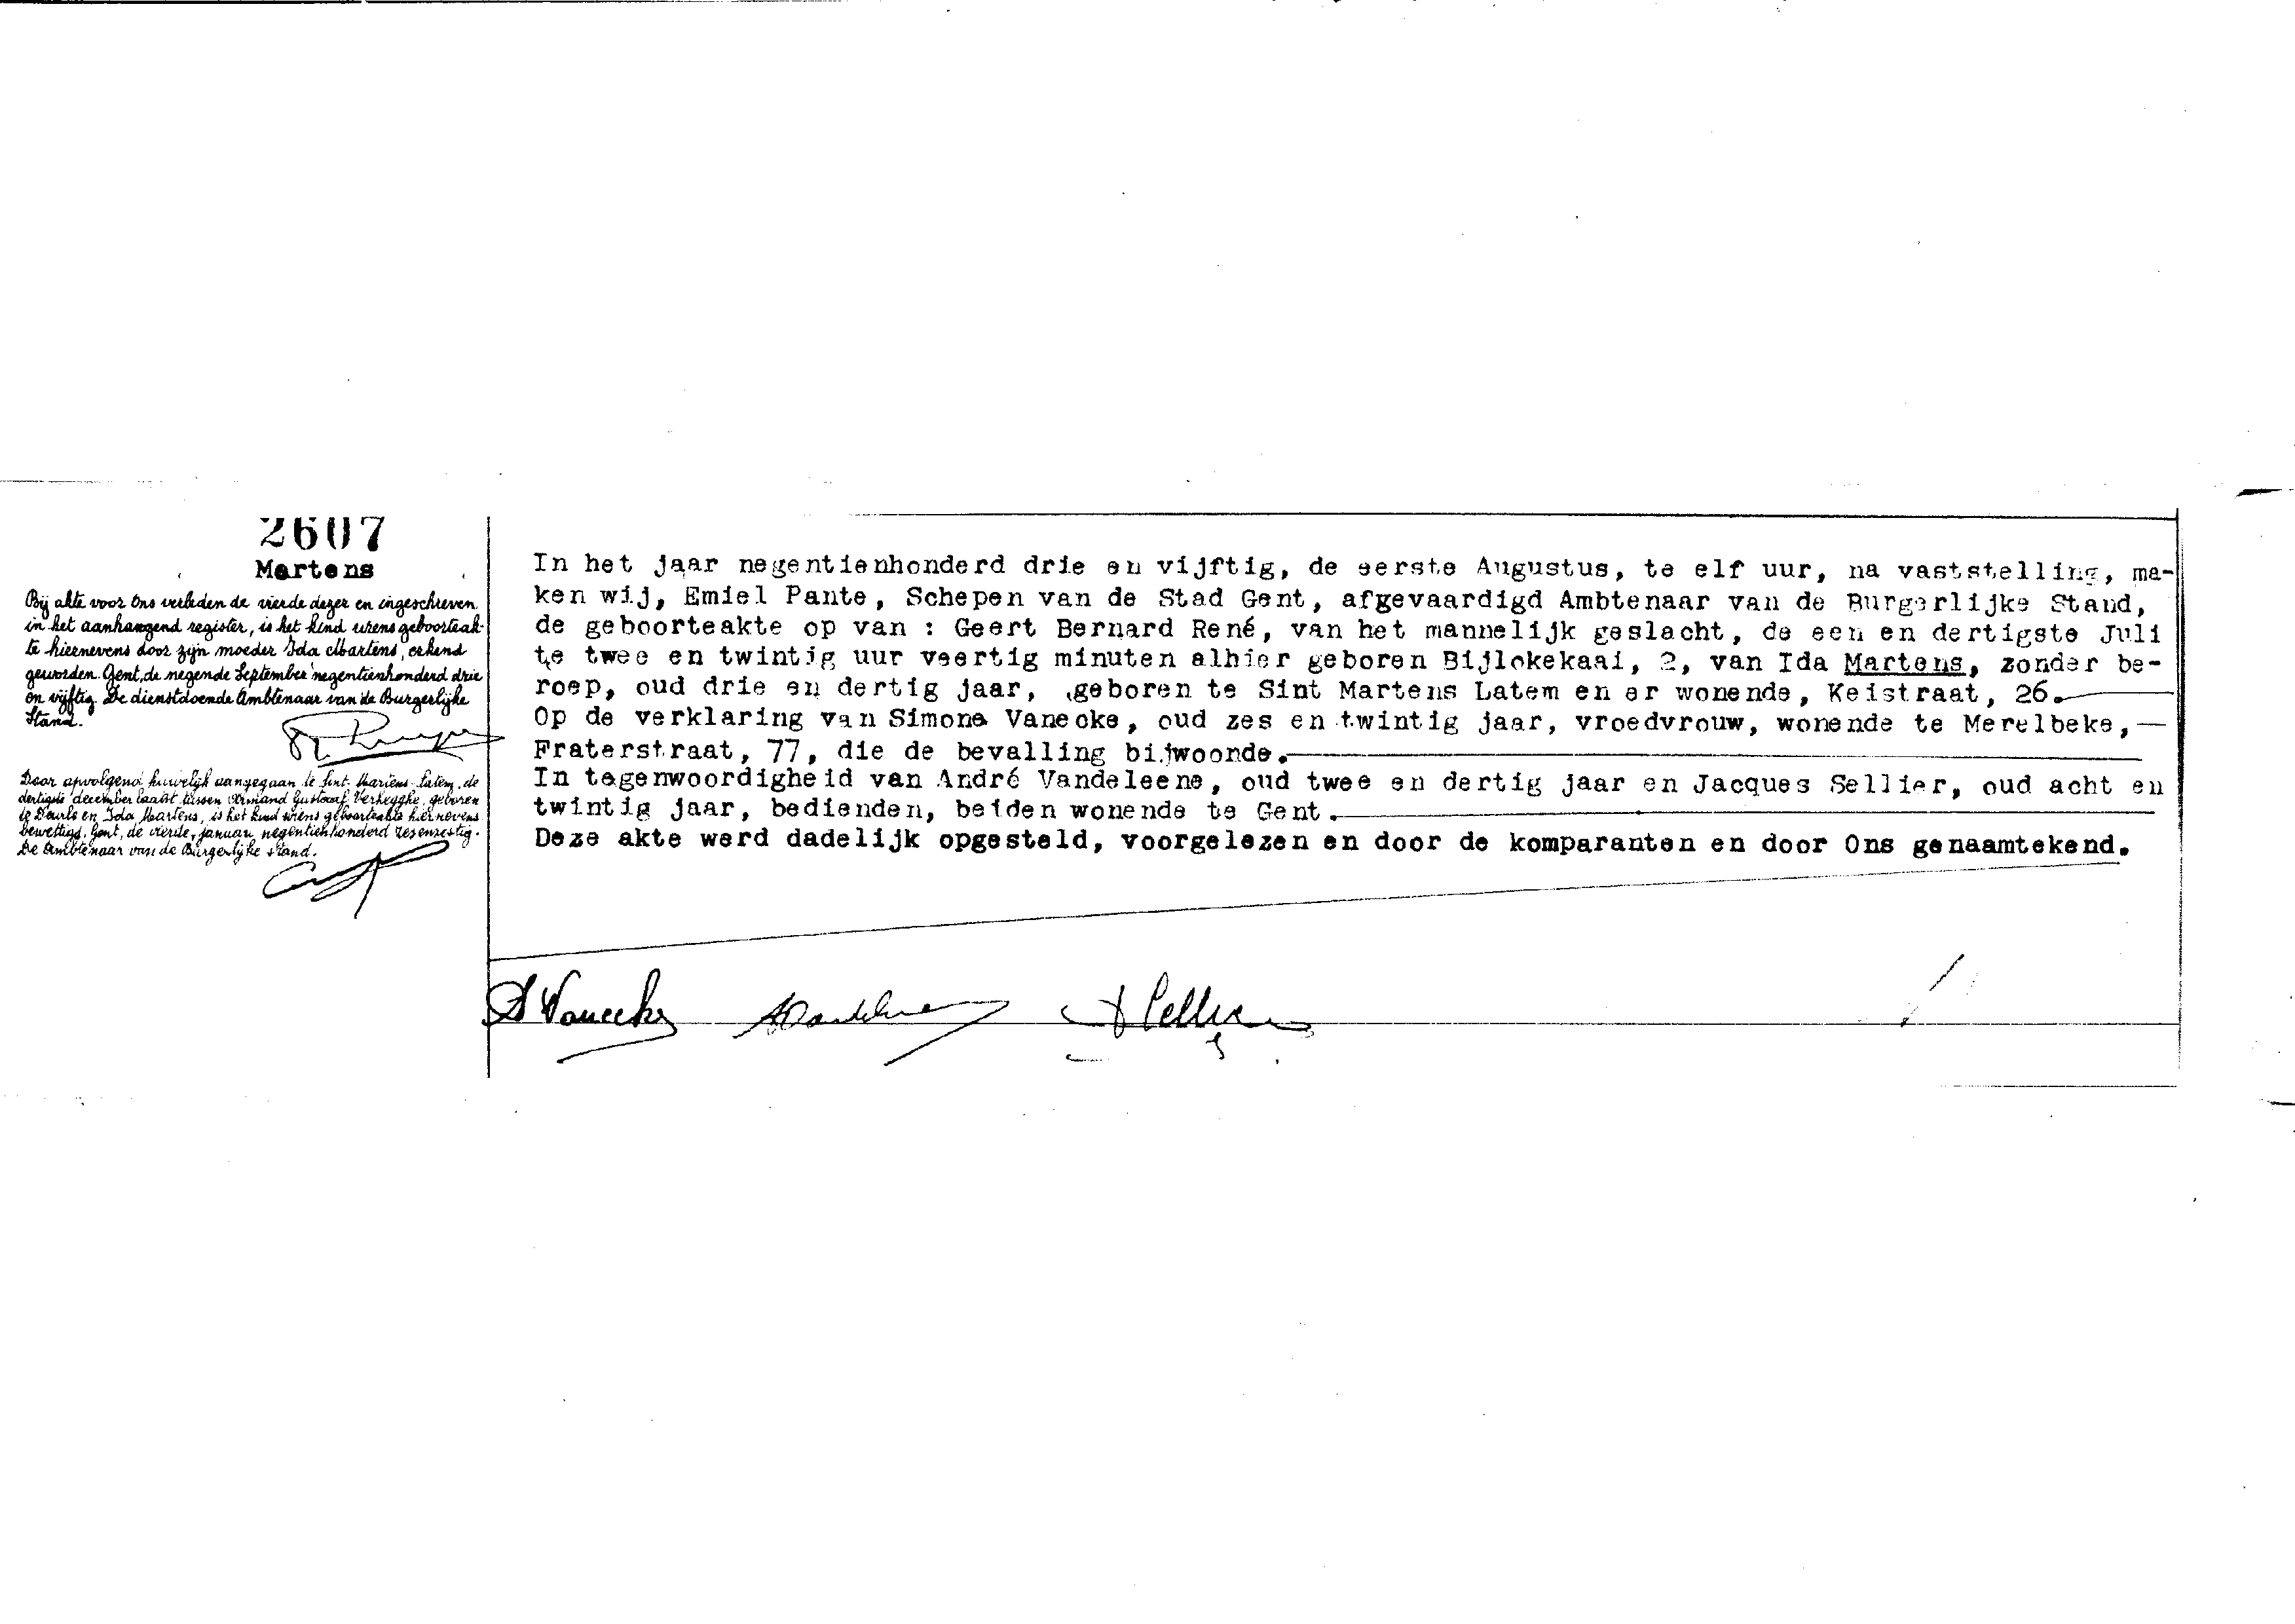 2607
Martens
Bij akte voor Ons verleden de vierde dezer en ingeschreven
in het aanhangend register, is het kind wiens geboorteak-
te hiernevens door zijn moeder Ida Martens, erkend
geworden. Gent, de negende September negentienhonderd drie
en vijftig. De dienstdoende Ambtenaar van de Burgerlijke
Stand.
Door opvolgend huwelijk aangegaan te Sint-Martens-Latem, de
dertigste december laatst tussen Armand Gustaaf Verheyghe, geboren
te Deurle en Ida Martens, is het kind wiens geboorteakte hiernevens
bewettigd. Gent, de vierde januari negentienhonderd zesenzestig.
De Ambtenaar van de Burgerlijke Stand.
In het jaar negentienhonderd drie en vijftig, de eerste Augustus, te elf uur, na vaststelling, ma-
ken wij, Emiel Pante, Schepen van de Stad Gent, afgevaardigd Ambtenaar van de Burgerlijke Stand,
de geboorteakte op van : Geert Bernard René, van het mannelijk geslacht, de een en dertigste Juli
te twee en twintig uur veertig minuten alhier geboren Bijlokekaai, 2, van Ida Martens, zonder be-
roep, oud drie en dertig jaar, geboren te Sint Martens Latem en er wonende, Keistraat, 26.
Op de verklaring van Simone Vanecke, oud zes en twintig jaar, vroedvrouw, wonende te Merelbeke,
Fraterstraat, 77, die de bevalling bijwoonde.
In tegenwoordigheid van André Vandeleene, oud twee en dertig jaar en Jacques Sellier, oud acht en
twintig jaar, bedienden, beiden wonende te Gent.
Deze akte werd dadelijk opgesteld, voorgelezen en door de komparanten en door Ons genaamtekend.
S Vanecke